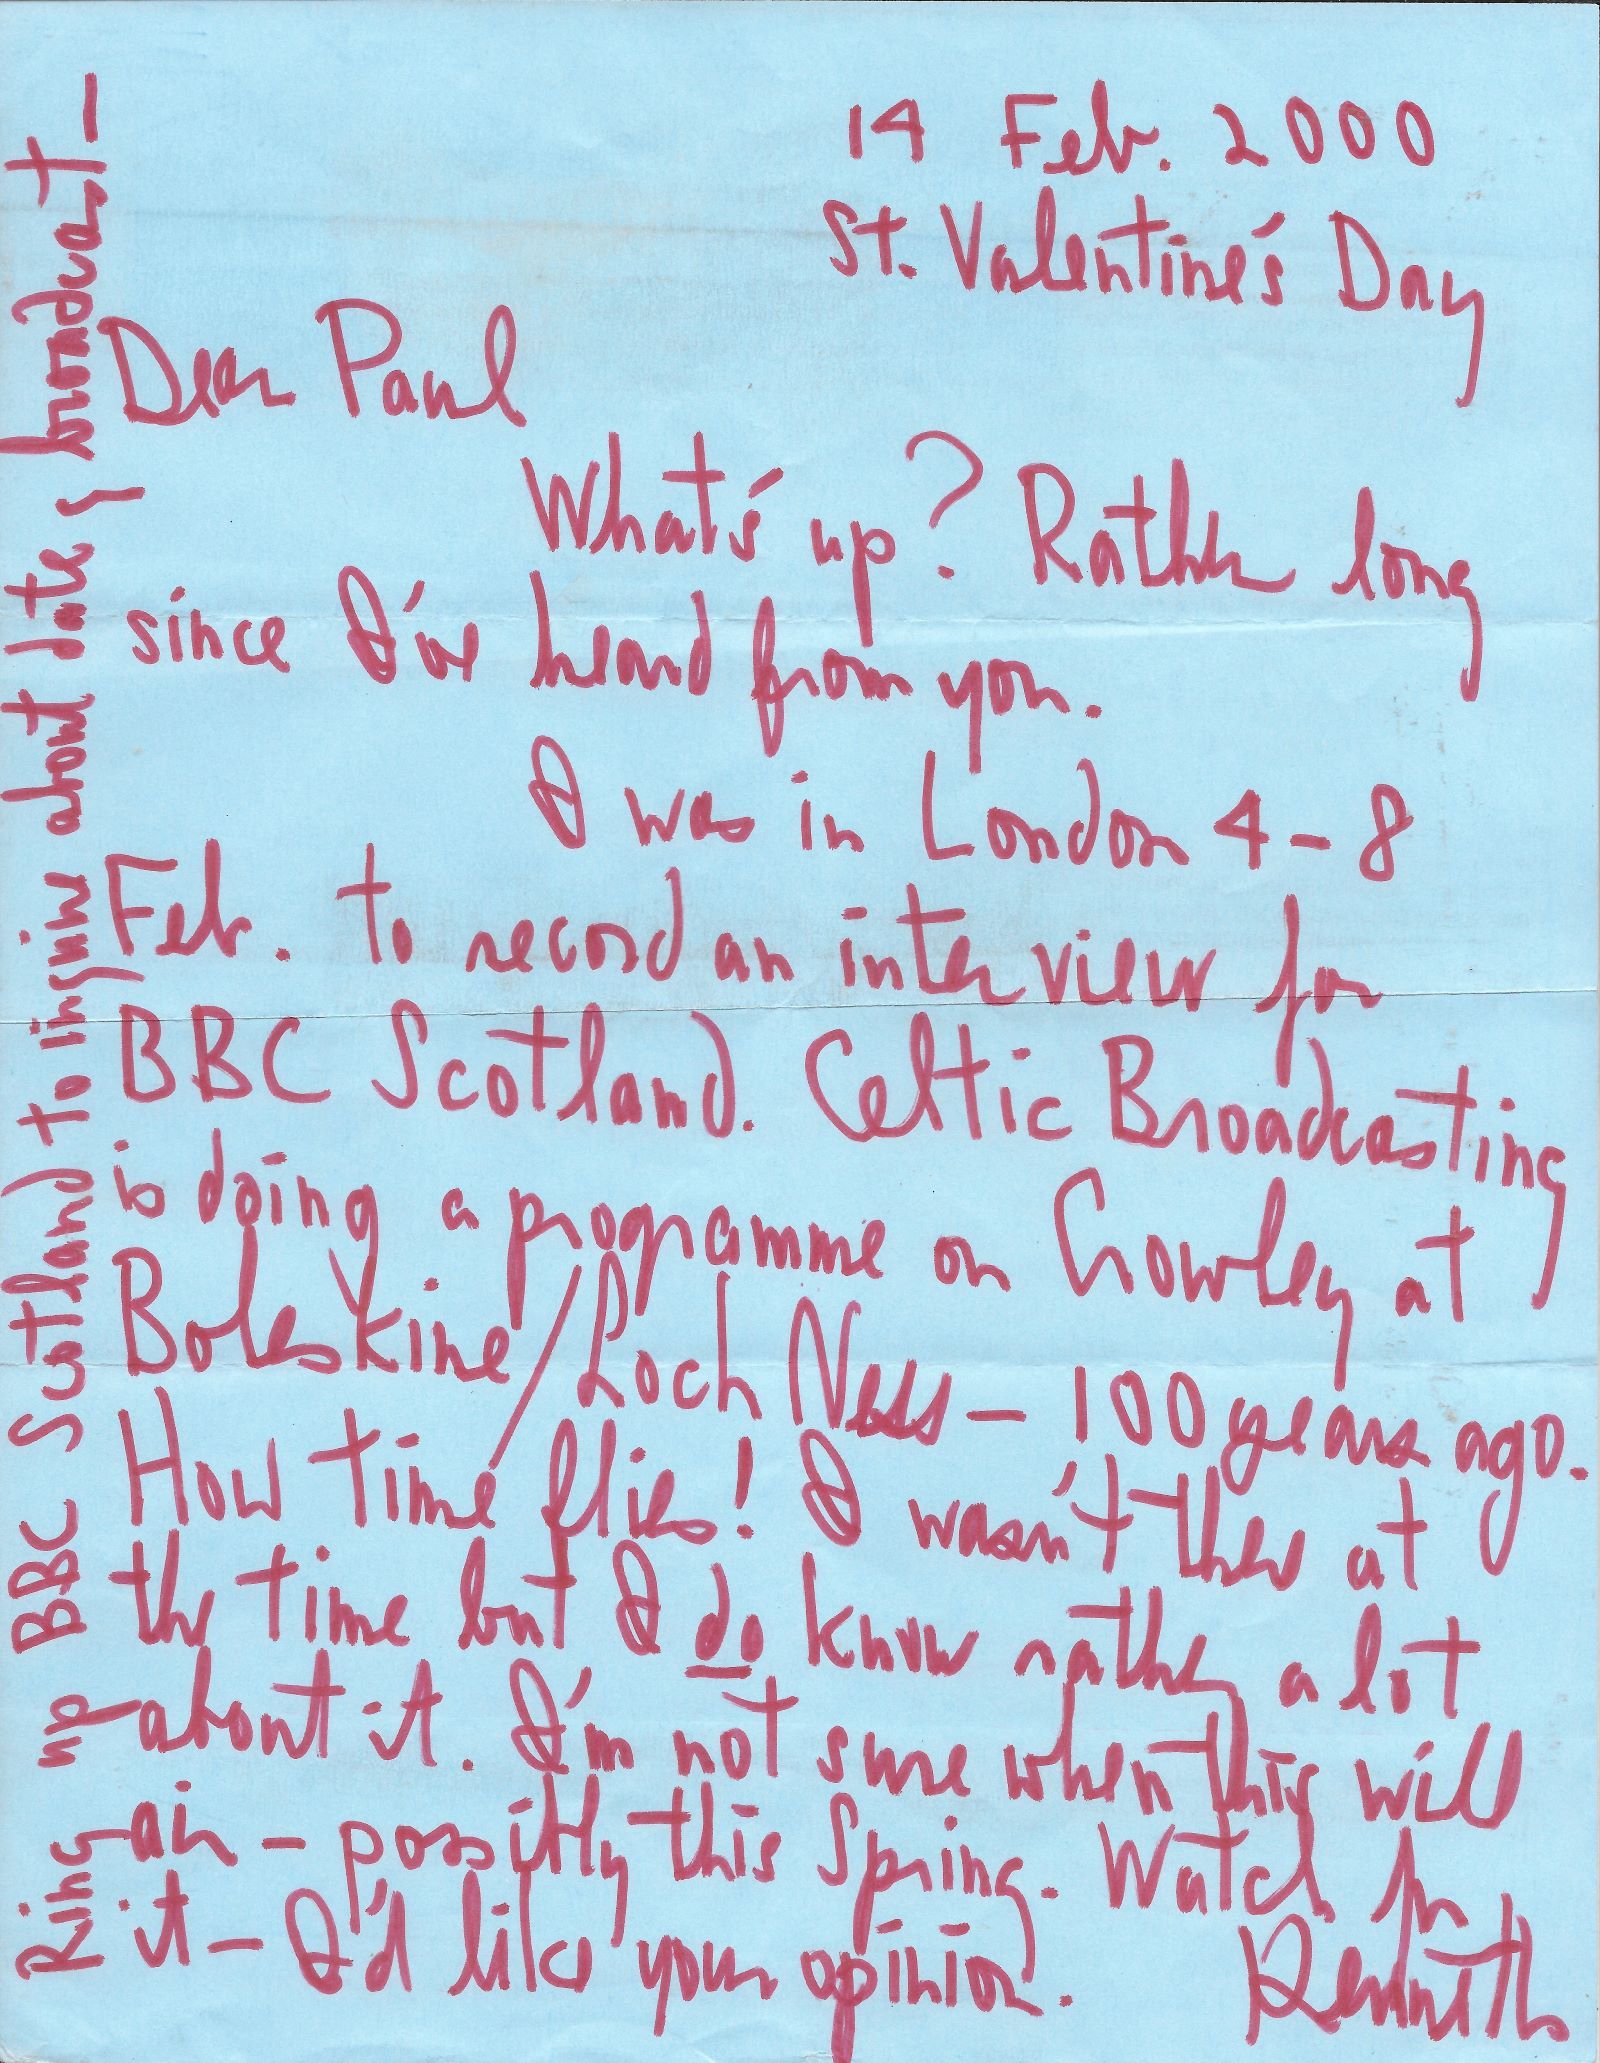 14 Feb. 2000
St. Valentine's Day
Dear Paul
What's up? Rather long
since I've heard from you.
I was in London 4-8
Feb. to record an interview for
BBC Scotland. Celtic Broadcasting
is doing a programme on Crowley at
Boleskine/Loch Ness - 100 years ago.
How time flies! I wasn't there at
the time but I do know rather a lot
about it. I'm not sure when this will
air - possibly this Spring. Watch for
it - I'd like your opinion.
Kenneth
Ring up BBC Scotland to inquire about date of broadcast -